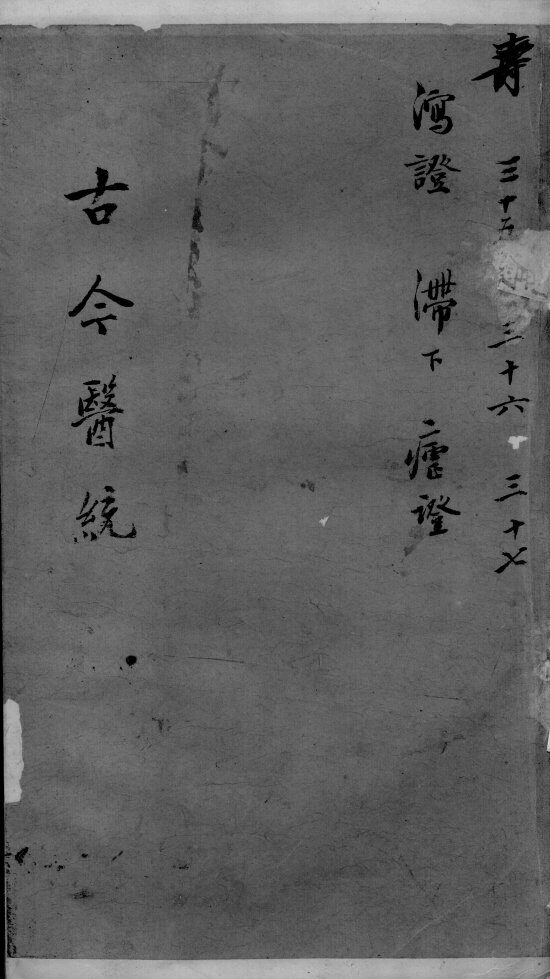 壽 三十五 三十六 三十七
瀉證 滯下 瘧證
古今醫統